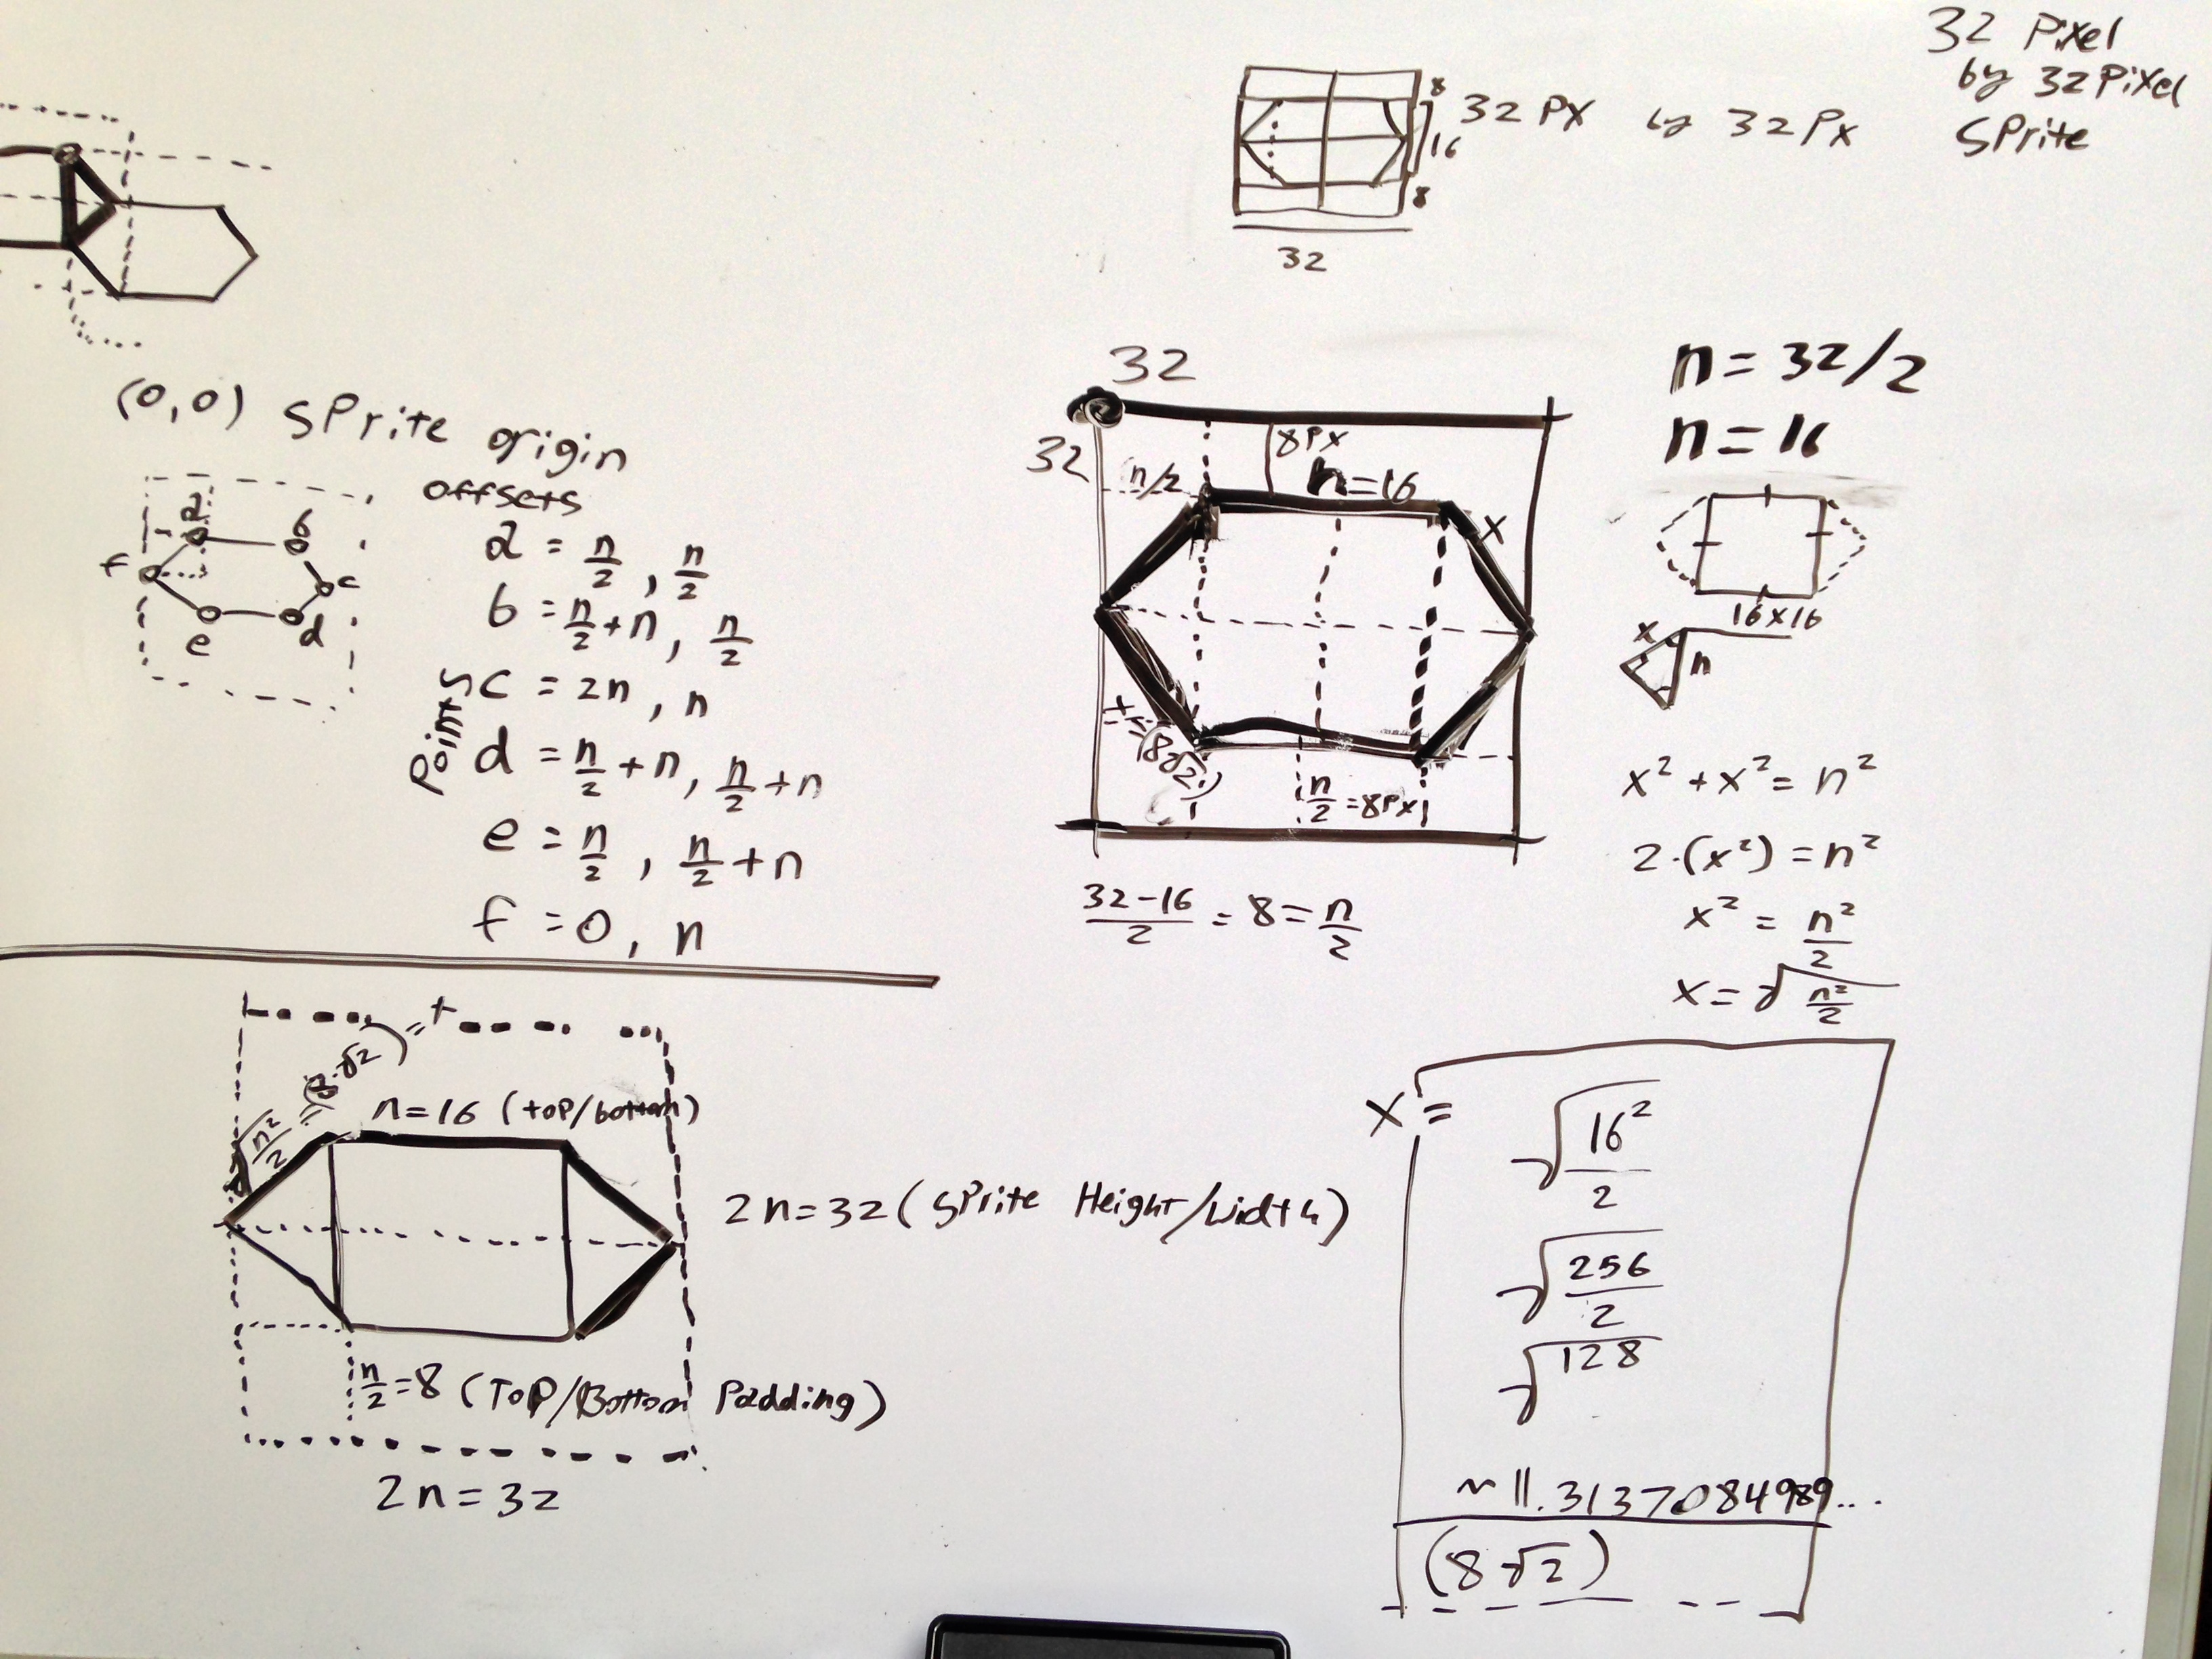 32 Pixel
by 32 Pixel
Sprite
32 PX by 32 Px
8
16
8
32
(0,0) sprite origin
offsets
a
b
c
d
e
f
Points
a = n/2, n/2
b = n/2+n, n/2
c = 2n, n
d = n/2+n, n/2+n
e = n/2, n/2+n
f = 0, n
32
32
8PX
n/2
n=16
x
x=(8√2)
n/2=8Px
(32-16)/2 = 8 = n/2
n=32/2
n=16
16x16
x
n
x²+x²=n²
2·(x²)=n²
x²=n²/2
x=√(n²/2)
√(n²/2) = (8·√2) = x
n=16 (top/bottom)
2n=32 (sprite Height/width)
n/2=8 (Top/Bottom Padding)
2n=32
x=
√(16²/2)
√(256/2)
√128
~11.3137084989...
(8√2)